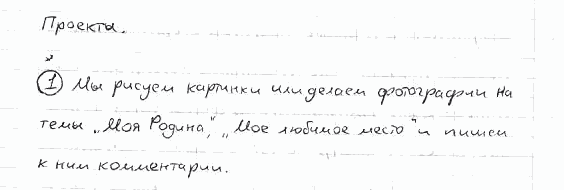 Проекты.
① Мы рисуем картинки или делаем фотографии на
темы „Моя Родина", „Мое любимое место" и пишем
к ним комментарии.